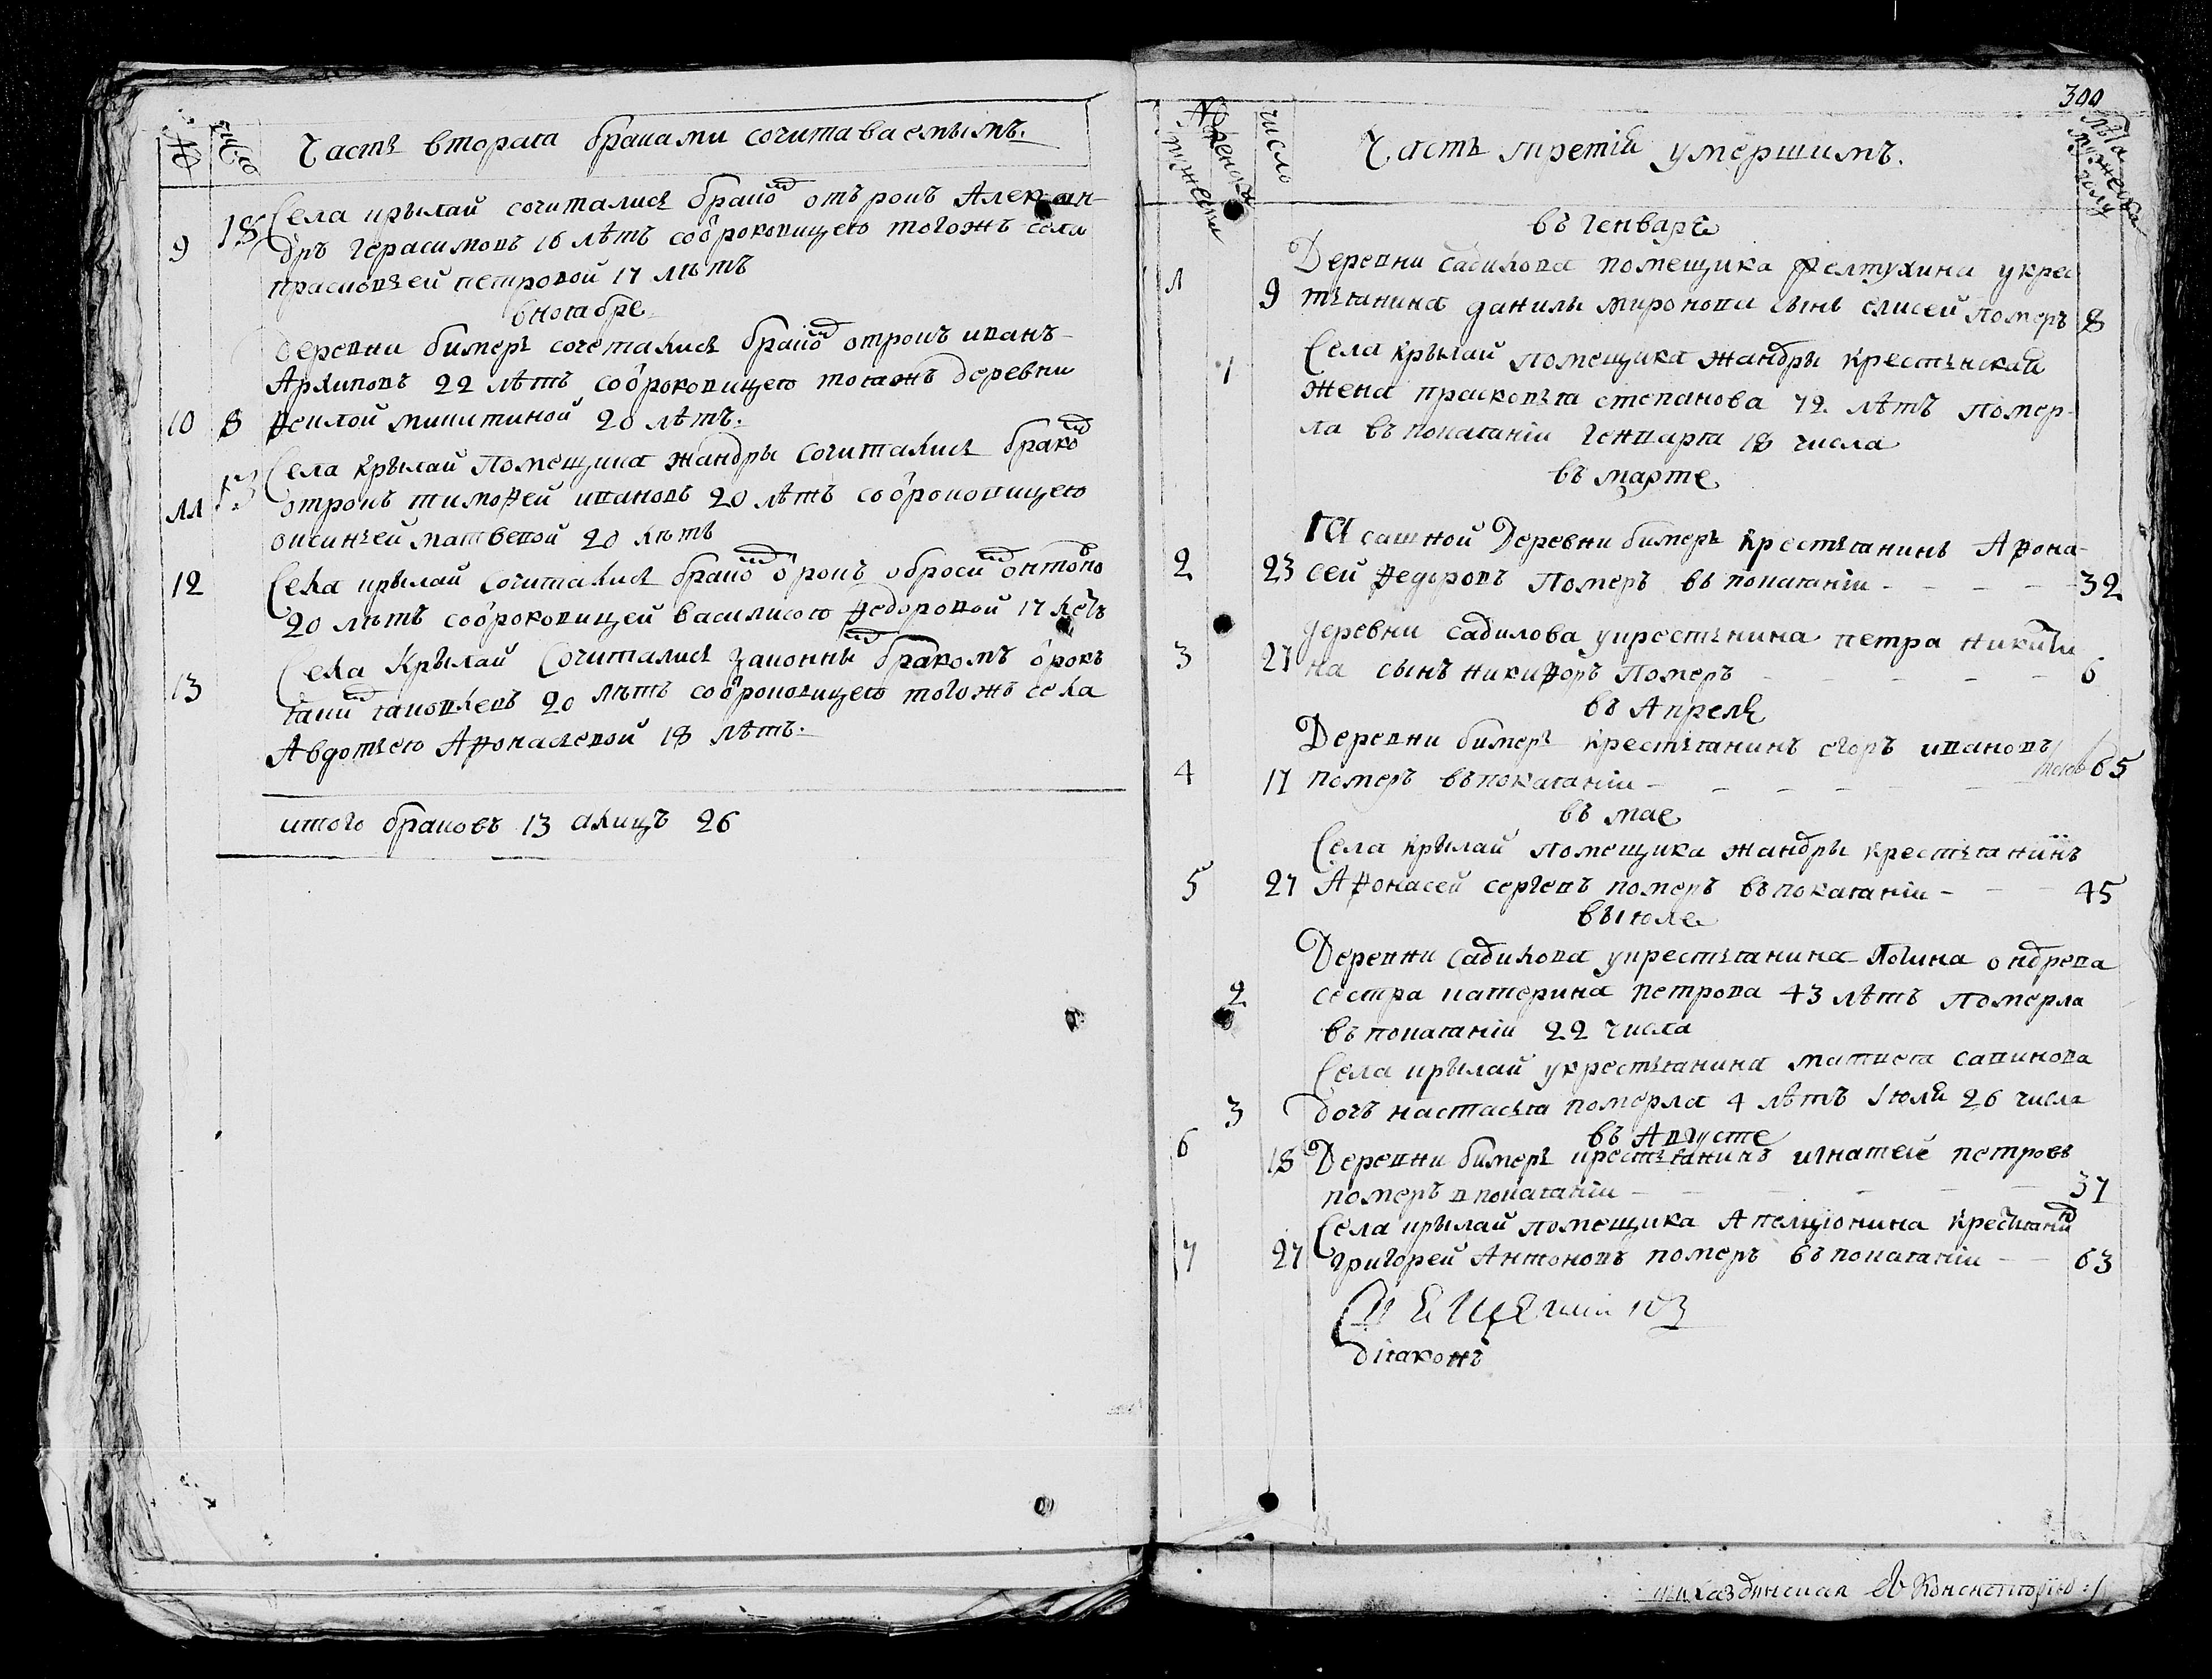 № число Часть вторая браками сочитаваемымъ.
9 18 Села крылай сочитался браком отърокъ Алексан-
дръ герасимовъ 16 лѣтъ соотроковицею тогожъ села
прасковьей петровой 17 лѣтъ
в ноябре
10 8 деревни бимерь сочетался браком отрокъ иванъ
Архиповъ 22 лѣтъ соотроковицею тояжъ деревни
феклой микитиной 20 лѣтъ.
11 13 Села крылай помещика жандры сочитался браком
отрокъ тимофей ивановъ 20 лѣтъ соотроковицею
оксиньей матвевой 20 лѣтъ
12 Села крылай сочитался браком отрокъ обросим онтонов
20 лѣтъ соотроковицей василисою федоровой 17 летъ
13 Села крылай сочитался законным бракомъ отрокъ
яким яковлевъ 20 лѣтъ соотроковицею тогожъ села
Авдотьею Афонасевой 18 лѣтъ.
итого браковъ 13 а лицъ 26
300
число Часть третия умершимъ. лѣта
въ генваре
1 9 Деревни садилова помещика желтухина у крес
тьянина данилы миронова сынъ елисей померъ 8
1 Села крылай помещика жандры крестьнская
жена прасковья степанова 72 лѣтъ помер-
ла въ покаянии генваря 18 числа
въ марте
2 23 Ясашной деревни бимерь крестьянинъ Афона-
сей федоровъ померъ въ покаянии 32
3 27 деревни садилова у крестьнина петра никити
на сынъ никифоръ померъ 6
въ Апреле
4 17 Деревни бимерь крестьянинъ егоръ ивановъ
померъ въ покаянии 65
въ мае
5 27 Села крылай помещика жандры крестьянинъ
Афонасей сергевъ померъ въ покаянии 45
въ июле
2 Деревни садилова у крестьянина логина ондрева
сестра катерина петрова 43 лѣтъ померла
въ покаянии 22 числа
3 Села крылай у крестьянина матвея савинова
дочь настасья померла 4 лѣтъ июля 26 числа
въ Августе
6 18 Деревни бимерь крестьянинъ игнатей петровъ
померъ в покаянии 37
7 27 Села крылай помещика крестьянин
григорей Антоновъ померъ въ покаянии 63
диаконъ
Консисторию